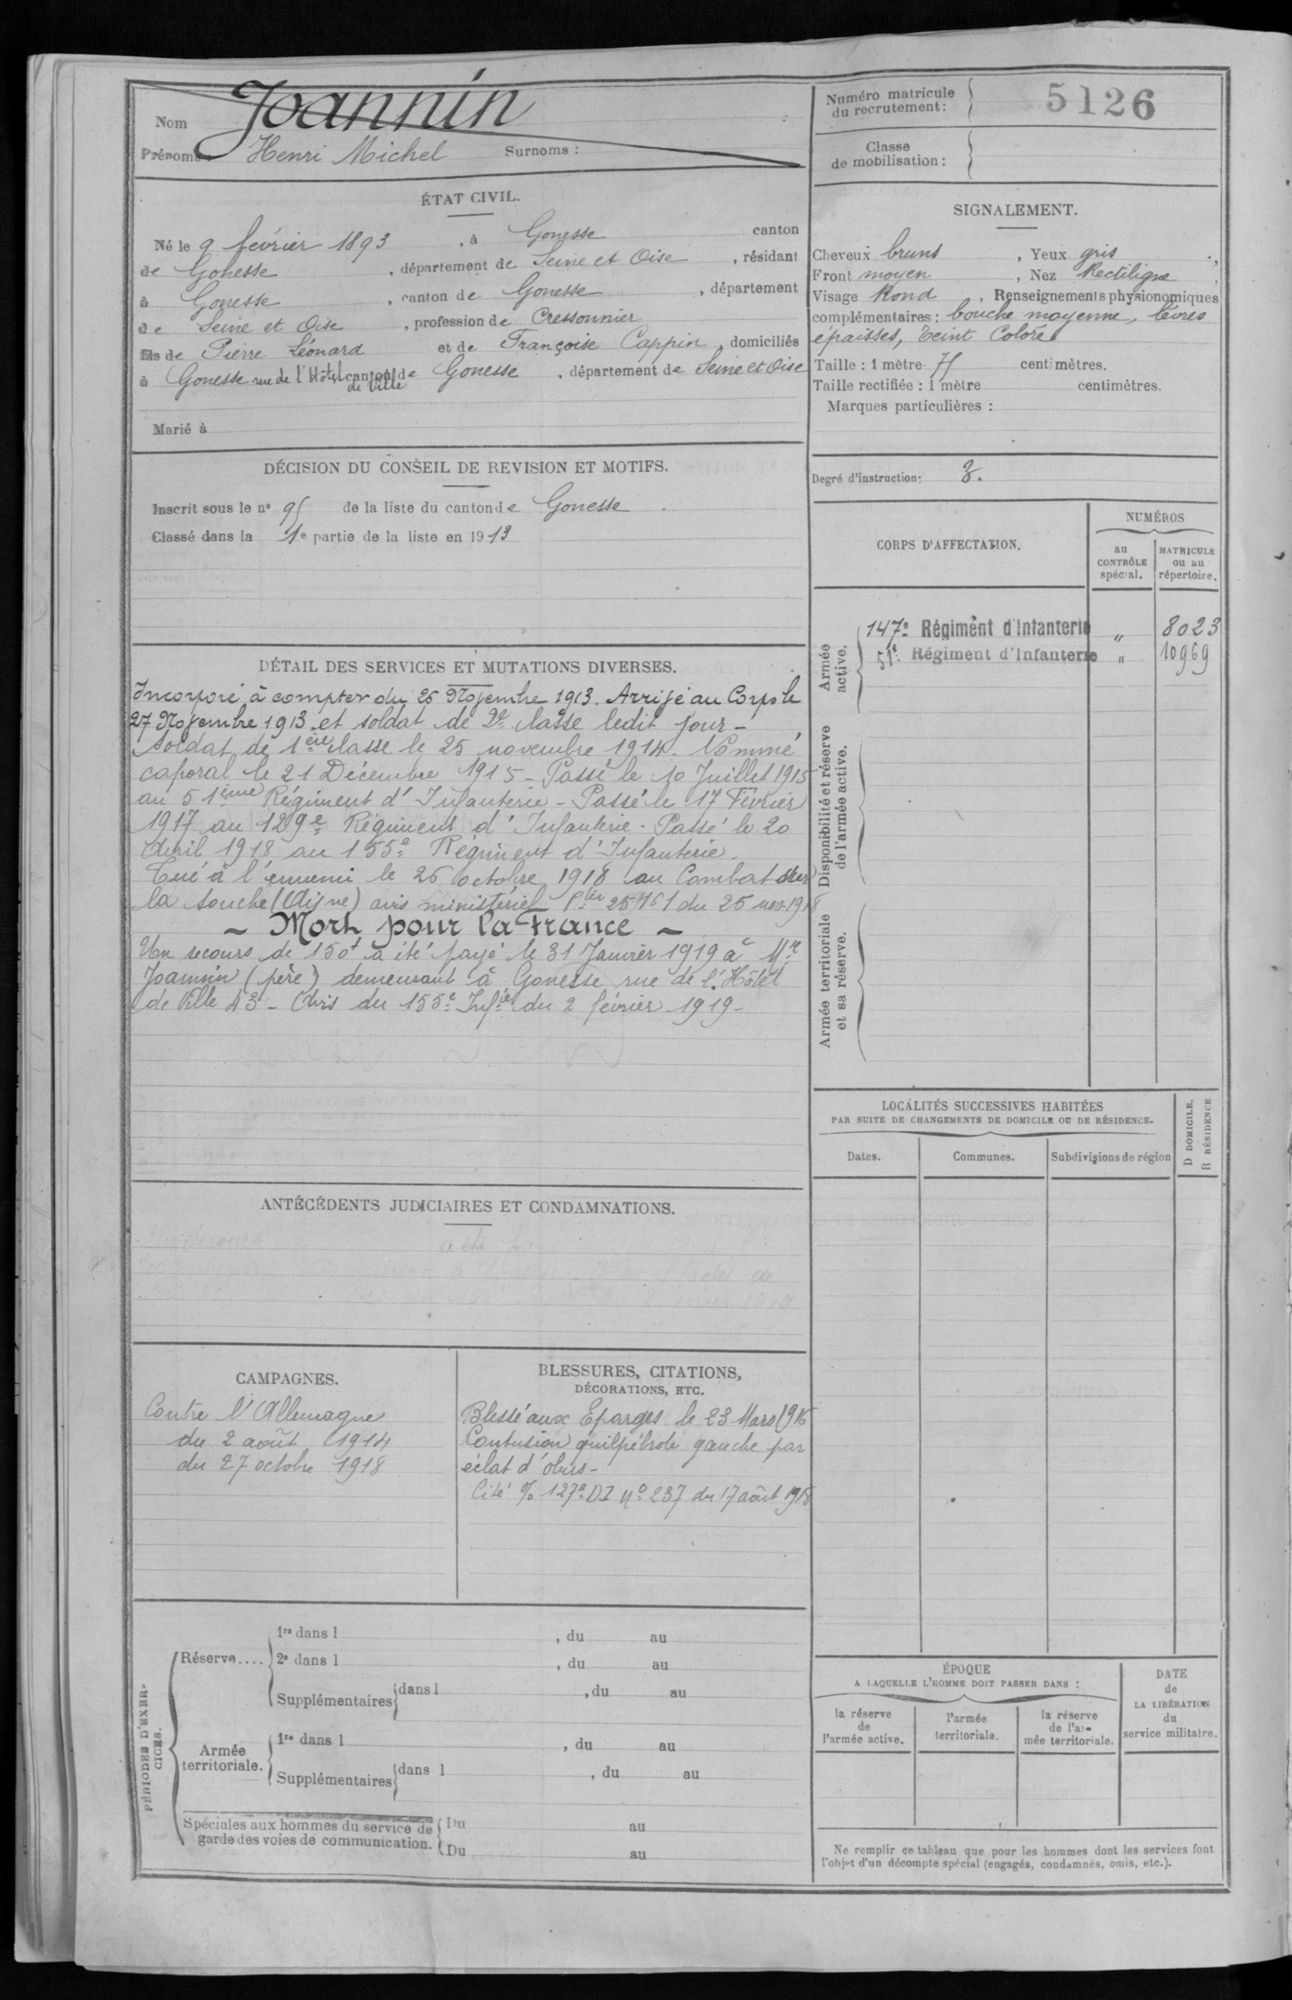 Nom Joannin
Prénoms : Henri Michel Surnoms :
Numéro matricule du recrutement : 5126
Classe de mobilisation :
ÉTAT CIVIL.
Né le 9 février 1893, à Gonesse canton
de Gonesse, département de Seine et Oise, résidant
à Gonesse, canton de Gonesse, département
de Seine et Oise, profession de Cressonnier
fils de Pierre Léonard et de Françoise Cappin, domiciliés
à Gonesse rue de l'Hôtel de Ville canton de Gonesse, département de Seine et Oise
Marié à
SIGNALEMENT.
Cheveux bruns, Yeux gris
Front moyen, Nez Rectiligne
Visage Rond, Renseignements physionomiques
complémentaires : bouche moyenne, lèvres
épaisses, teint Coloré
Taille : 1 mètre 71 centimètres.
Taille rectifiée : 1 mètre centimètres.
Marques particulières :
Degré d'instruction: 3.
DÉCISION DU CONSEIL DE REVISION ET MOTIFS.
Inscrit sous le n° 95 de la liste du canton de Gonesse.
Classé dans la 1e partie de la liste en 1913
CORPS D'AFFECTATION.
NUMÉROS
au CONTRÔLE spécial.
MATRICULE ou au répertoire.
Armée active.
147e Régiment d'Infanterie " 8023
51e Régiment d'Infanterie " 10969
Disponibilité et réserve de l'armée active.
Armée territoriale et sa réserve.
DÉTAIL DES SERVICES ET MUTATIONS DIVERSES.
Incorporé à compter du 26 Novembre 1913. Arrivé au Corps le
27 Novembre 1913 et soldat de 2e classe ledit jour -
Soldat de 1ère classe le 25 novembre 1914. Nommé
caporal le 21 Décembre 1915 - Passé le 10 Juillet 1915
au 51ème Régiment d'Infanterie - Passé le 17 Février
1917 au 129e Régiment d'Infanterie - Passé le 20
Avril 1918 au 155e Régiment d'Infanterie.
Tué à l'ennemi le 26 octobre 1918 au Combat sur
la Souche (Aisne) avis ministériel 25761 du 25 nov. 1918
- Mort pour la France -
Un secours de 150f a été payé le 31 Janvier 1919 à Mr
Joannin (père) demeurant à Gonesse rue de l'Hôtel
de Ville 43 - Avis du 155e Infie du 2 février 1919 -
LOCALITÉS SUCCESSIVES HABITÉES
PAR SUITE DE CHANGEMENTS DE DOMICILE OU DE RÉSIDENCE.
Dates. Communes. Subdivisions de région
D DOMICILE. R RÉSIDENCE
ANTÉCÉDENTS JUDICIAIRES ET CONDAMNATIONS.
CAMPAGNES.
Contre l'Allemagne
du 2 août 1914
du 27 octobre 1918
BLESSURES, CITATIONS,
DÉCORATIONS, ETC.
Blessé aux Eparges le 23 Mars 1916
Contusion gauche par
éclat d'obus -
Cité % 127e DI No 237 du 17 août 1918
PÉRIODES D'EXERCICES.
Réserve....
1re dans l , du au
2e dans l , du au
Supplémentaires dans l , du au
Armée territoriale.
1re dans l , du au
Supplémentaires dans l , du au
Spéciales aux hommes du service de garde des voies de communication.
Du au
Du au
ÉPOQUE
A LAQUELLE L'HOMME DOIT PASSER DANS :
la réserve de l'armée active.
l'armée territoriale.
la réserve de l'armée territoriale.
DATE de LA LIBÉRATION du service militaire.
Ne remplir ce tableau que pour les hommes dont les services font
l'objet d'un décompte spécial (engagés, condamnés, omis, etc.).